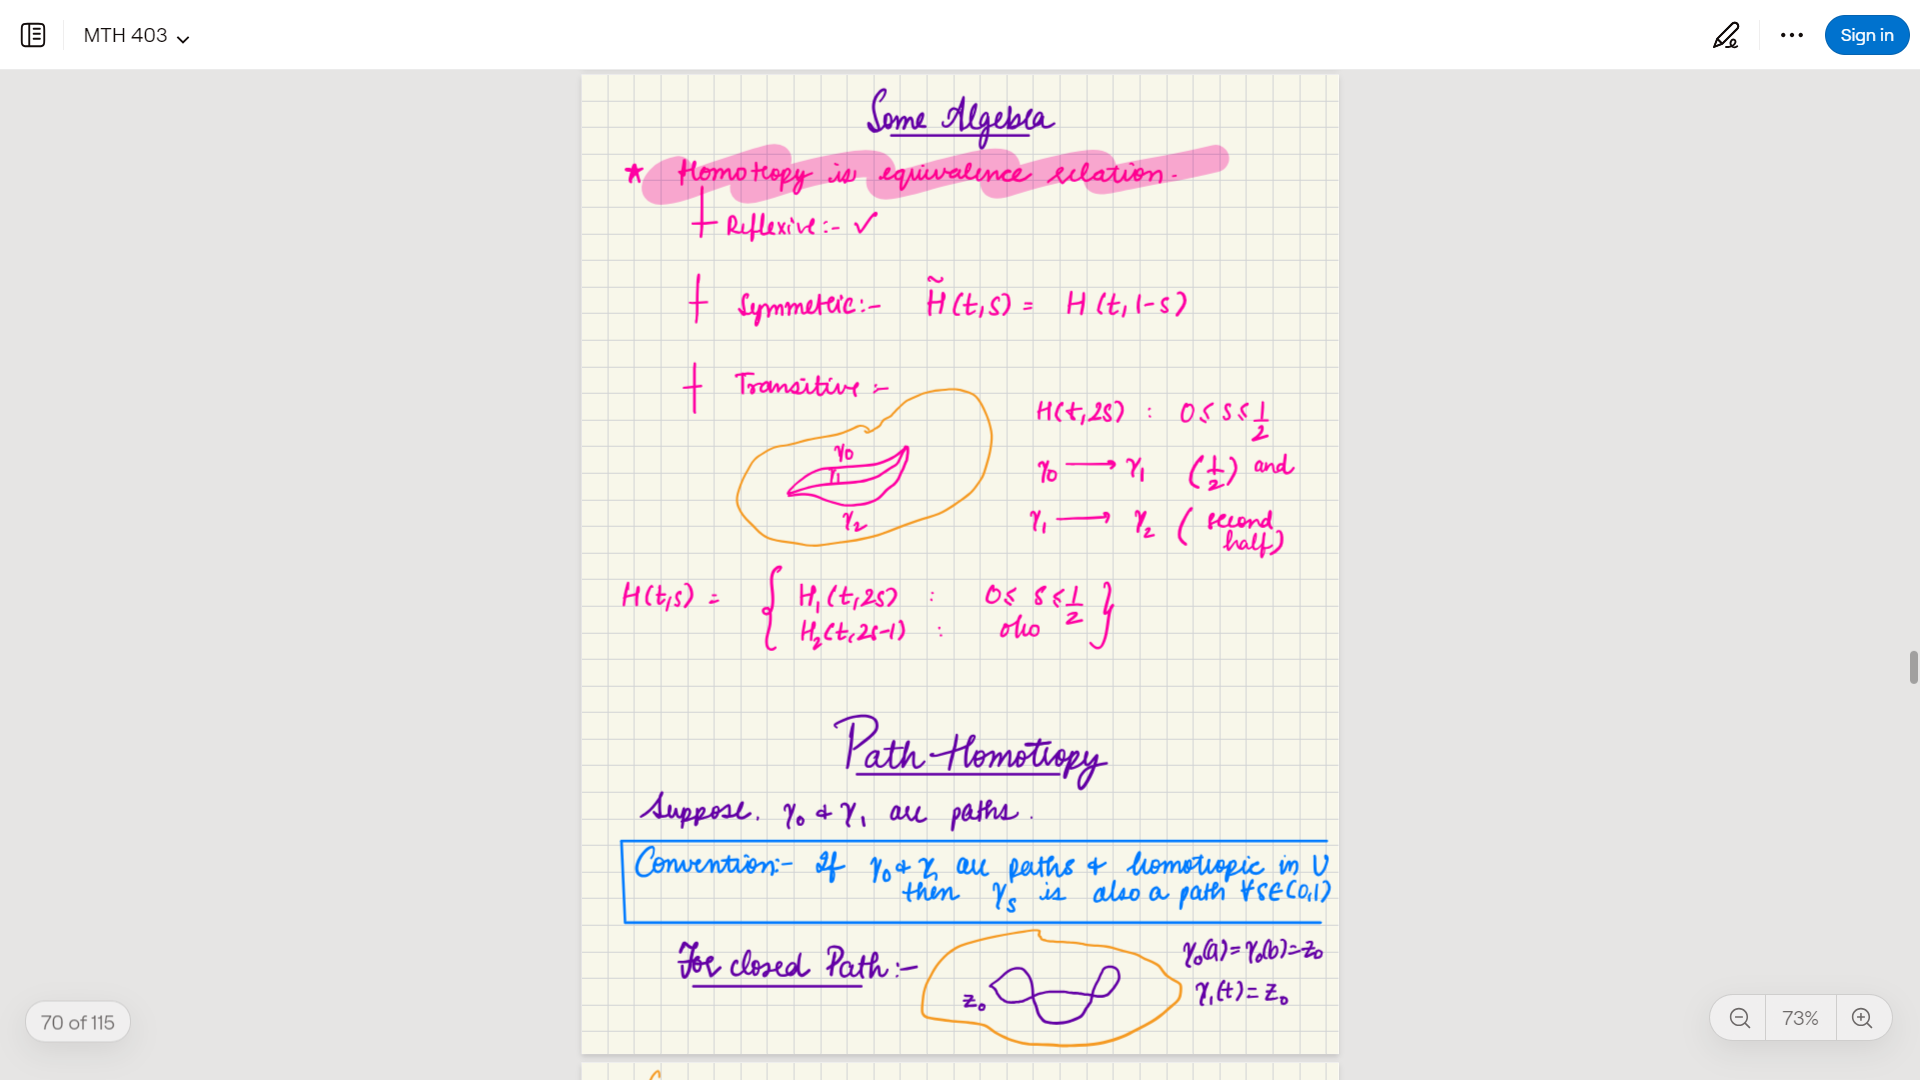 MTH 403
Sign in
Some Algebra
★ Homotopy is equivalence relation.
Reflexive:- ✓
Symmetric:- H̃(t,s) = H(t,1-s)
Transitive:-
H(t,2s) : 0≤s≤1/2
γ0 → γ1 (1/2) and
γ1 → γ2 (second half)
γ0
γ1
γ2
H(t,s) = { H1(t,2s) : 0≤ s ≤1/2
H2(t,2s-1) : o/w }
Path-Homotopy
Suppose. γ0 & γ1 are paths.
Convention:- If γ0 & γ1 are paths & homotopic in U
then γs is also a path ∀s∈(0,1)
For closed Path:-
z0
γ0(a)=γ0(b)=z0
γ1(t)=z0
70 of 115
73%